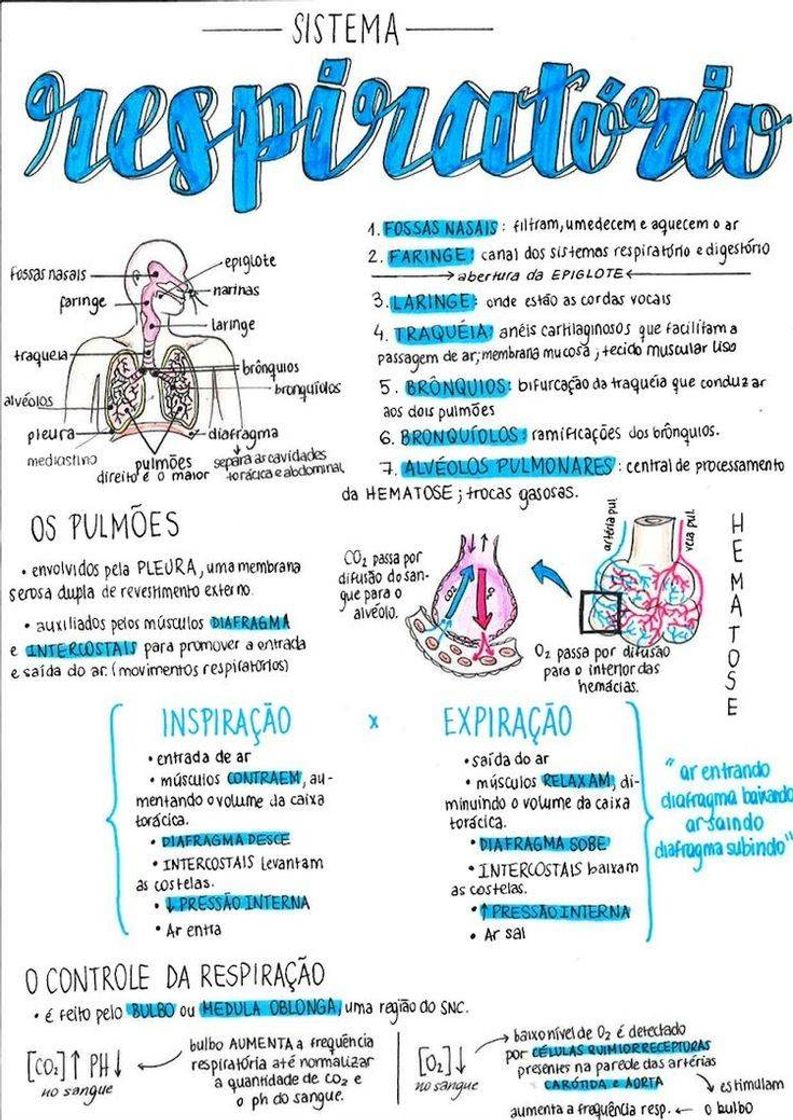 SISTEMA
respiratório
1. FOSSAS NASAIS: filtram, umedecem e aquecem o ar
2. FARINGE: canal dos sistemas respiratório e digestório
abertura da EPIGLOTE
3. LARINGE: onde estão as cordas vocais
4. TRAQUÉIA: anéis cartilaginosos que facilitam a
passagem de ar; membrana mucosa; tecido muscular liso
5. BRÔNQUIOS: bifurcação da traquéia que conduz ar
aos dois pulmões
6. BRONQUÍOLOS: ramificações dos brônquios.
7. ALVÉOLOS PULMONARES: central de processamento
da HEMATOSE; trocas gasosas.
fossas nasais
faringe
traqueia
alvéolos
pleura
mediastino
epiglote
narinas
laringe
brônquios
bronquíolos
diafragma
separa as cavidades
torácica e abdominal
pulmões
direito é o maior
OS PULMÕES
• envolvidos pela PLEURA, uma membrana
serosa dupla de revestimento externo.
• auxiliados pelos músculos DIAFRAGMA
e INTERCOSTAIS para promover a entrada
e saída do ar. (movimentos respiratórios)
CO2 passa por
difusão do san-
gue para o
alvéolo.
CO2
O2
artéria pul.
veia pul.
O2 passa por difusão
para o interior das
hemácias.
HEMATOSE
INSPIRAÇÃO x EXPIRAÇÃO
• entrada de ar
• músculos CONTRAEM, au-
mentando o volume da caixa
torácica.
• DIAFRAGMA DESCE
• INTERCOSTAIS levantam
as costelas.
• ↓ PRESSÃO INTERNA
• Ar entra
• saída do ar
• músculos RELAXAM, di-
minuindo o volume da caixa
torácica.
• DIAFRAGMA SOBE
• INTERCOSTAIS baixam
as costelas.
• ↑ PRESSÃO INTERNA
• Ar sai
"ar entrando
diafragma baixando
ar saindo
diafragma subindo"
O CONTROLE DA RESPIRAÇÃO
• é feito pelo BULBO ou MEDULA OBLONGA, uma região do SNC.
[CO2]↑ PH↓
no sangue
bulbo AUMENTA a frequência
respiratória até normalizar
a quantidade de CO2 e
o ph do sangue.
[O2]↓
no sangue
baixo nível de O2 é detectado
por CÉLULAS QUIMIORRECEPTURAS
presentes na parede das artérias
CARÓTIDA e AORTA
estimulam
o bulbo
aumenta a frequência resp.